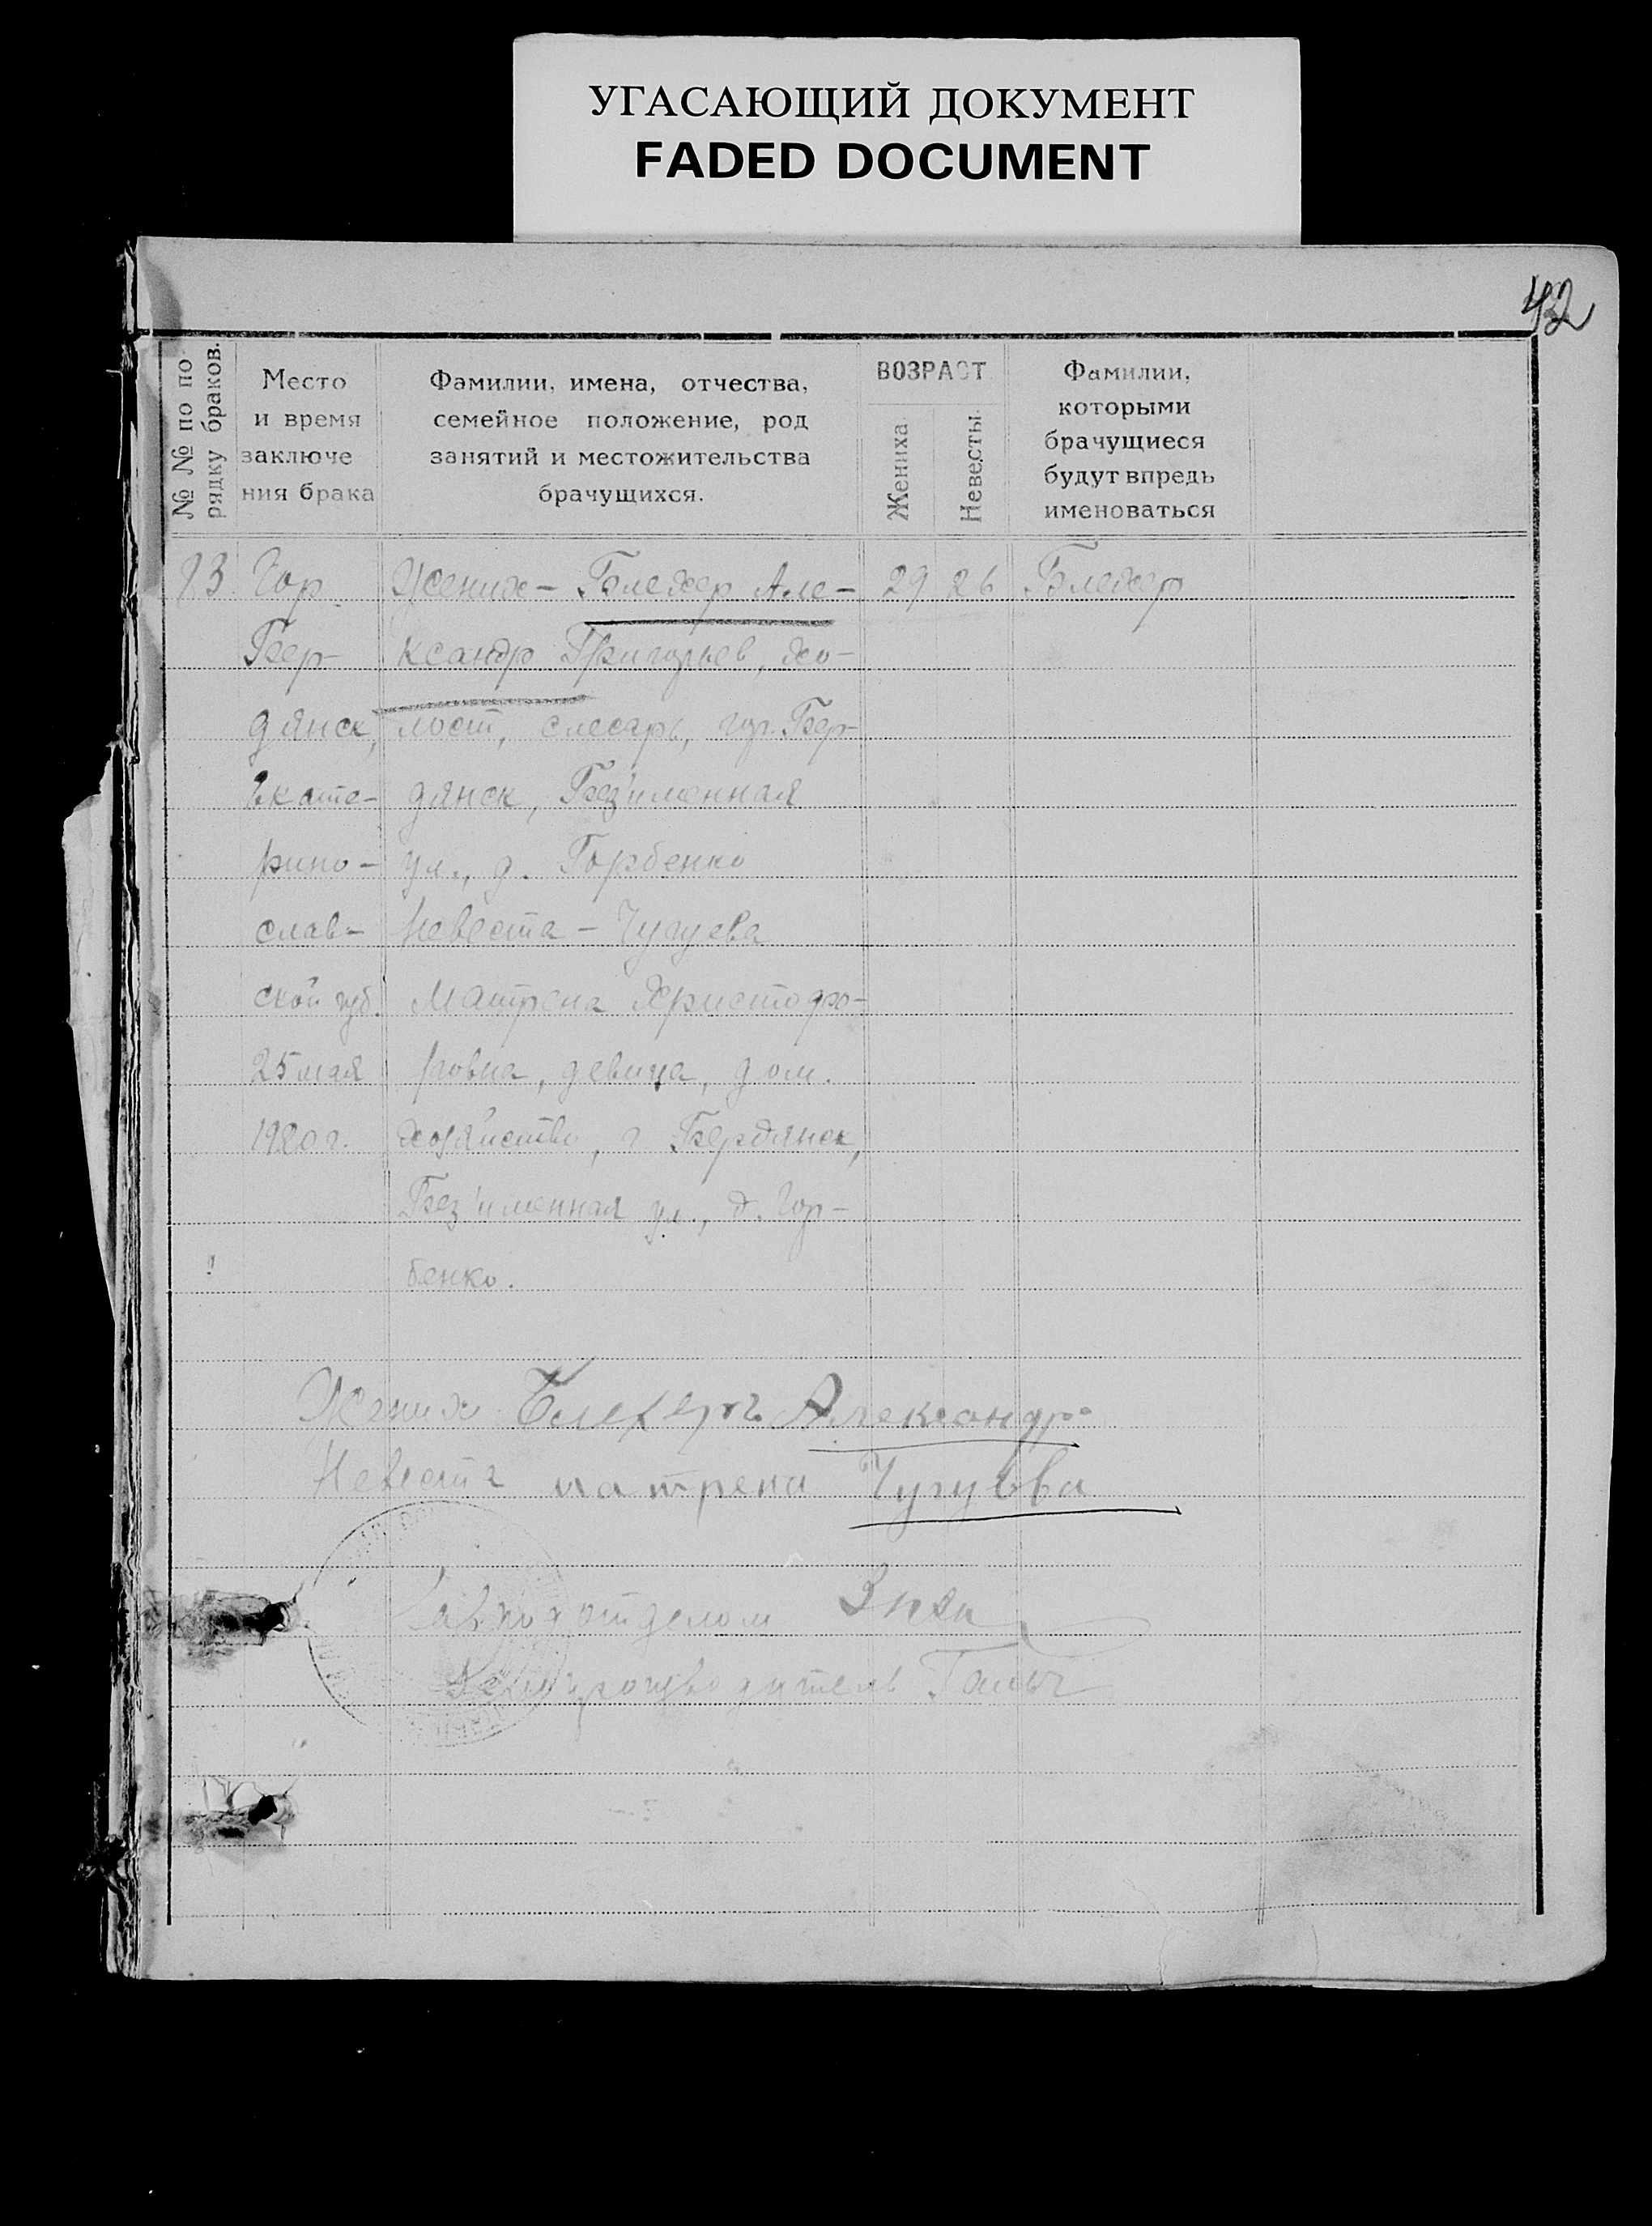 УГАСАЮЩИЙ ДОКУМЕНТ
FADED DOCUMENT
42
№ № по по
рядку браков.
Место
и время
заключе
ния брака
Фамилии, имена, отчества,
семейное положение, род
занятий и местожительства
брачущихся.
ВОЗРАСТ
Жениха
Невесты
Фамилии,
которыми
брачущиеся
будут впредь
именоваться
Гор.
Бер-
дянск,
Екате-
рино-
слав-
ской губ.
25 мая
1920 г.
Жених – Блехер Але-
ксандр Григорьев, хо-
лост, слесарь, гор. Бер-
дянск, Без'именная
ул., д. Горбенко
Невеста – Чугуева
Матрена Христофо-
ровна, девица, дом.
хозяйство, г. Бердянск,
Без'именная ул., д. Гор-
бенко.
29
26
Блехер
Жених Блехеръ Александр
Невеста матрена Чугуева
Завподотделом
Делопроизводитель